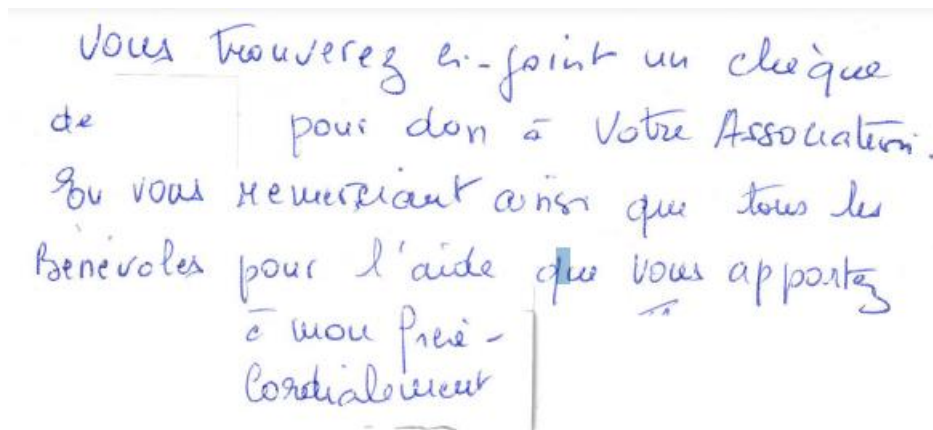 Vous trouverez ci-joint un chèque
de pour don à Votre Association.
En vous remerciant ainsi que tous les
Bénévoles pour l'aide que vous apportez
à mon frère -
Cordialement